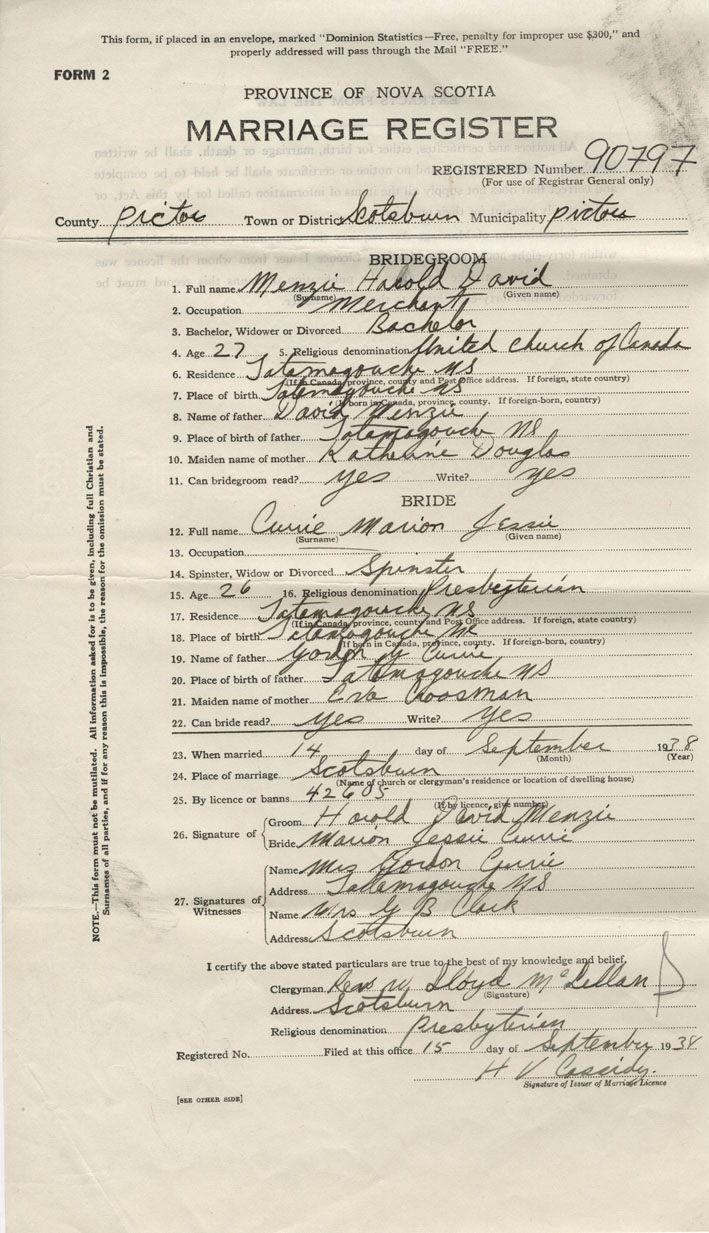 This form, if placed in an envelope, marked "Dominion Statistics—Free, penalty for improper use $300," and
properly addressed will pass through the Mail "FREE."
FORM 2
PROVINCE OF NOVA SCOTIA
MARRIAGE REGISTER
REGISTERED Number 90797
(For use of Registrar General only)
County Pictou Town or District Scotsburn Municipality Pictou
BRIDEGROOM
1. Full name Menzie Harold David
(Surname) (Given name)
2. Occupation Merchant
3. Bachelor, Widower or Divorced Bachelor
4. Age 27 5. Religious denomination United Church of Canada
6. Residence Tatamagouche NS
(If in Canada, province, county and Post Office address. If foreign, state country)
7. Place of birth Tatamagouche NS
(If born in Canada, province, county. If foreign-born, country)
8. Name of father David Menzie
9. Place of birth of father Tatamagouche NS
10. Maiden name of mother Katherine Douglas
11. Can bridegroom read? yes Write? yes
BRIDE
12. Full name Currie Marion Jessie
(Surname) (Given name)
13. Occupation
14. Spinster, Widow or Divorced Spinster
15. Age 26 16. Religious denomination Presbyterian
17. Residence Tatamagouche NS
(If in Canada, province, county and Post Office address. If foreign, state country)
18. Place of birth Tatamagouche NS
(If born in Canada, province, county. If foreign-born, country)
19. Name of father Gordon G Currie
20. Place of birth of father Tatamagouche NS
21. Maiden name of mother Eva
22. Can bride read? yes Write? yes
23. When married 14 day of September 1938
(Month) (Year)
24. Place of marriage Scotsburn
(Name of church or clergyman's residence or location of dwelling house)
25. By licence or banns 42605
(If by licence, give number)
26. Signature of
Groom Harold David Menzie
Bride Marion Jessie Currie
27. Signatures of Witnesses
Name Mrs Gordon Currie
Address Tatamagouche NS
Name Mrs G B Clark
Address Scotsburn
I certify the above stated particulars are true to the best of my knowledge and belief,
Clergyman Rev W Lloyd McLellan
(Signature)
Address Scotsburn
Religious denomination Presbyterian
Registered No. Filed at this office 15 day of September 1938
H V Cassidy.
Signature of Issuer of Marriage Licence
[SEE OTHER SIDE]
NOTE.—This form must not be mutilated. All information asked for is to be given, including full Christian and
Surnames of all parties, and if for any reason this is impossible, the reason for the omission must be stated.